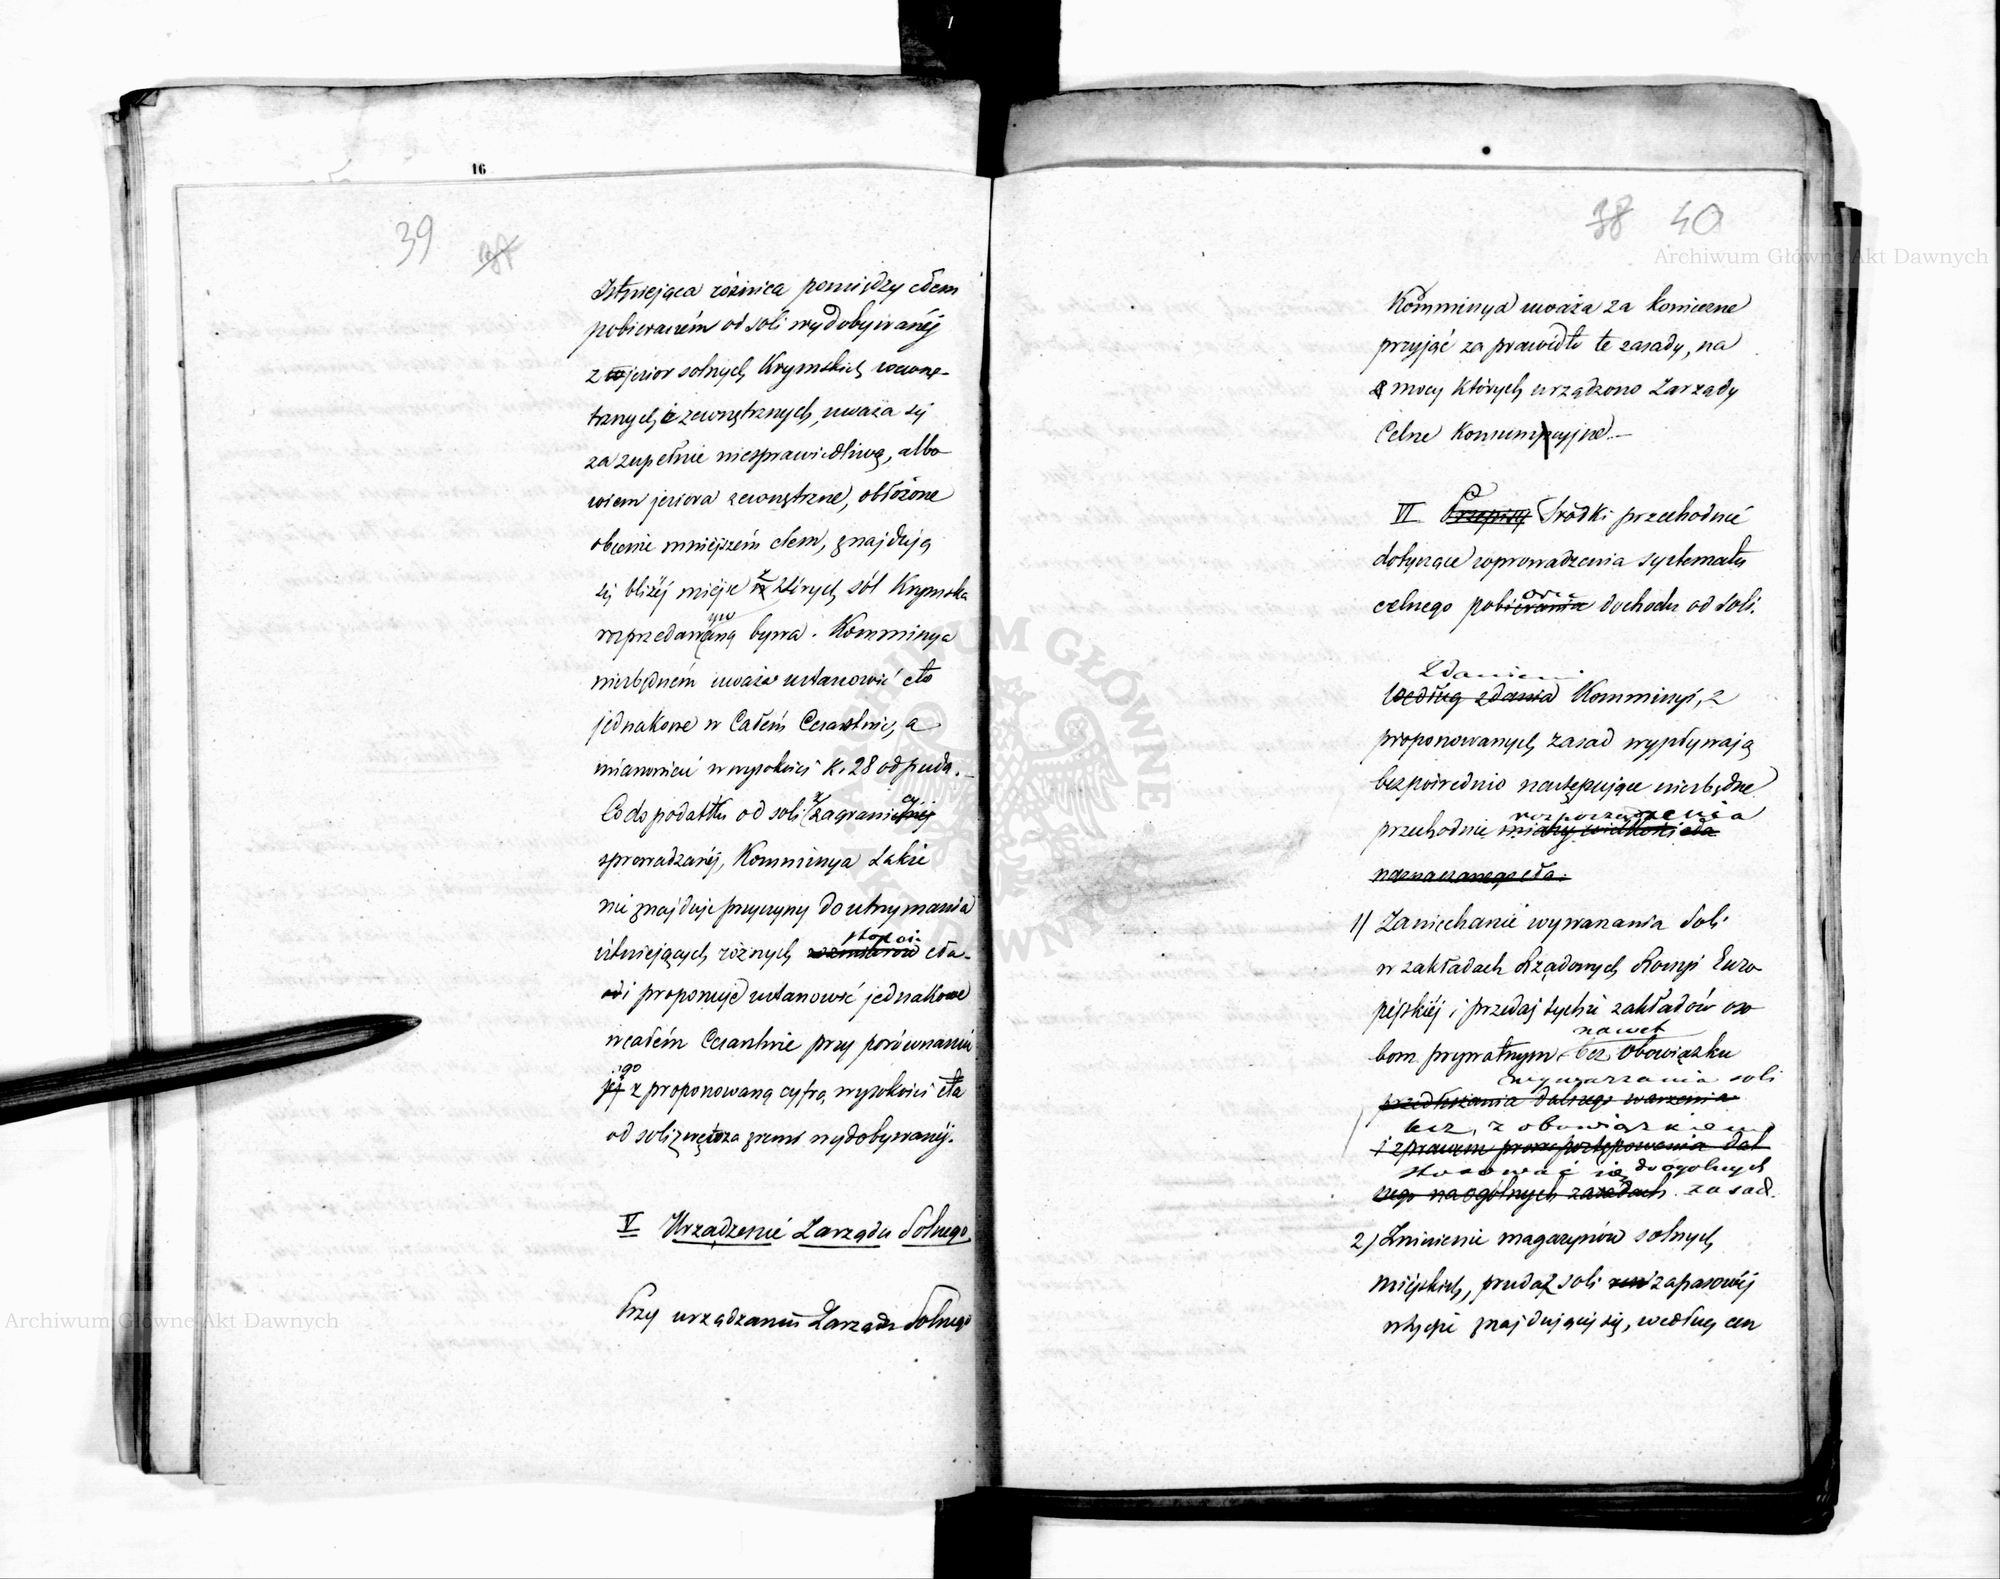 16
39
Istniejąca różnica pomiędzy cłem
pobieraném od soli wydobywanéj
z jezior solnych Krymskich wewnę-
trznych i zewnętrznych, uważa się
za zupełnie niesprawiedliwą, albo
wiem jeziora zewnętrzne, obłożone
obecnie mniejszém cłem, znajdują
się bliżéj miejsc z których sól Krymska
rozprzedawaną bywa. Kommisya
niezbędném uważa ustanowić cło
jednakowe w Całém Cesarstwie, a
mianowicie w wysokości K. 28 od puda.
Co do podatku od soli z zagranicy
sprowadzanéj, Kommisya także
nie znajduje przyczyny do utrzymania
istniejących różnych stopni cła
i proponuje ustanowić jednakowe
w całém Cesarstwie przy porównaniu
jego z proponowaną cyfrą wysokości cła
od soli zwnętrza ziemi wydobywanéj.
V Urządzenie Zarządu Solnego
Przy urządzaniu Zarządu Solnego
38 40
Kommisya uważa za konieczne
przyjąć za prawidło te zasady, na
mocy których urządzono Zarządy
Celne Konsumpcyjne.—
VI Przepisy Środki przechodnie
dotyczące wprowadzenia systematu
celnego pobierania dochodu od Soli.
Zdaniem
Według zdania Kommisyi, z
proponowanych zasad wypływają
bezpośrednio następujące niezbędne
rozporządzenia
przechodnie miary wielkości cła
naznaczanego cła.
1/ Zaniechanie wywarzania Soli
w zakładach Rządowych Rossyi Euro
pejskiéj i przedaż tychże zakładów oso
nawet
bom prywatnym bez obowiązku
wywarzania soli
przedłużania dalszego warzenia
lecz, z obowiązkiem
i z prawem postępowania dal
stosować się do ogólnych
szego na ogólnych zasadach zasad.
2) Zniesienie magazynów solnych
miejskich, przedaż soli zapasowéj
w tychże znajdującéj się, według cen
Archiwum Główne Akt Dawnych
Archiwum Główne Akt Dawnych
ARCHIWUM GŁÓWNE AKT DAWNYCH